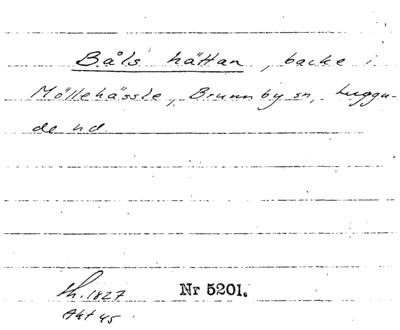 Båls hättan, backe i
Möllehässle, Brunnby sn, Luggu-
de hd
Lh. 1827 Nr 5201.
Akt 45